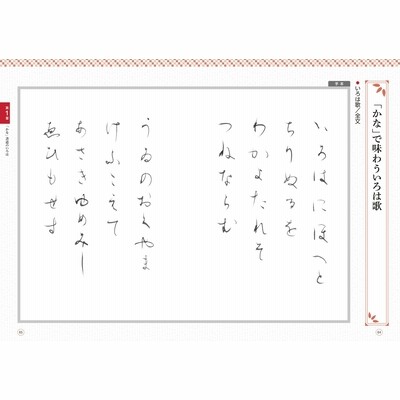 「かな」で味わういろは歌
●いろは歌／全文
いろはにほへと
ちりぬるを
わかよたれそ
つねならむ
うゐのおくやま
けふこえて
あさきゆめみし
ゑひもせす
第1章